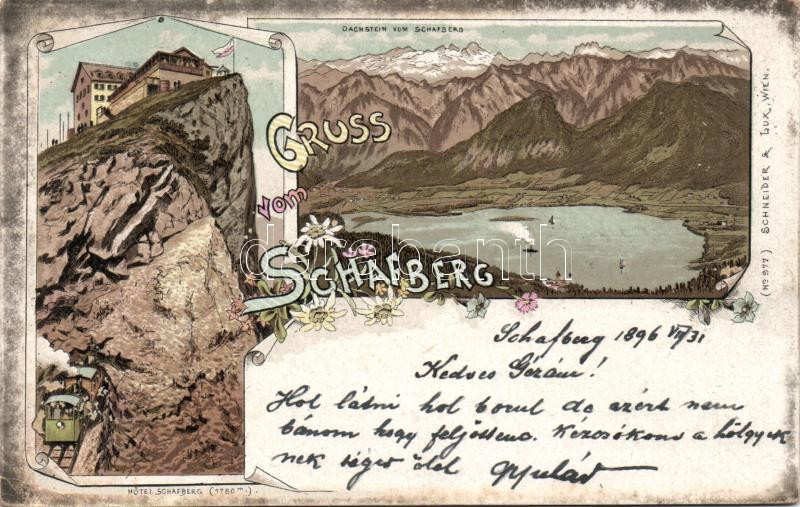 DACHSTEIN VOM SCHAFBERG
GRUSS
vom
SCHAFBERG
(No 977) SCHNEIDER & LUX, WIEN.
HÔTEL SCHAFBERG (1780 m.).
Schafberg 1896 VII/31
Kedves Gézám!
Hol látni hol borul de azért nem
bánom hogy feljöttem. Kézcsókom a hölgyek
nek
ölel
darabanth